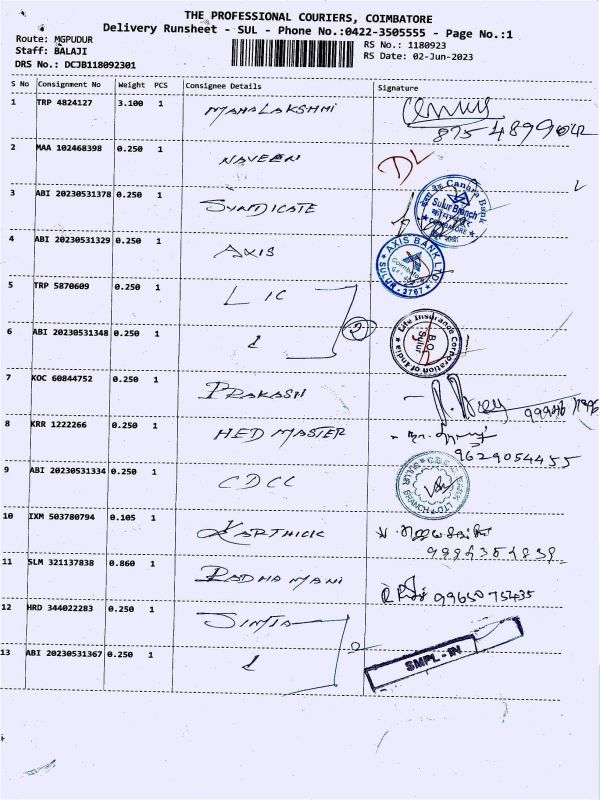 THE PROFESSIONAL COURIERS, COIMBATORE
Delivery Runsheet - SUL - Phone No.:0422-3505555 - Page No.:1
Route: MGPUDUR
Staff: BALAJI
DRS No.: DCJB118092301
RS No.: 1180923
RS Date: 02-Jun-2023
S No Consignment No Weight PCS Consignee Details Signature
1 TRP 4824127 3.100 1 MAHALAKSHMI
2 MAA 102468398 0.250 1 NAVEEN DL
3 ABI 20230531378 0.250 1 SYNDICATE Canara Bank Sulur Branch
4 ABI 20230531329 0.250 1 AXIS AXIS BANK LTD. SULUR - 3767
5 TRP 5870609 0.250 1 LIC
2
6 ABI 20230531348 0.250 1 Life Insurance Corporation of India B.O. Sulur
7 KOC 60844752 0.250 1 PRAKASH
8 KRR 1222266 0.250 1 HED MASTER
9629054455
9 ABI 20230531334 0.250 1 CDCC
10 IXM 503780794 0.105 1 KARTHICK
11 SLM 321137838 0.860 1 RADHA MANI 9965075435
12 HRD 344022283 0.250 1
13 ABI 20230531367 0.250 1 SMPL - IN